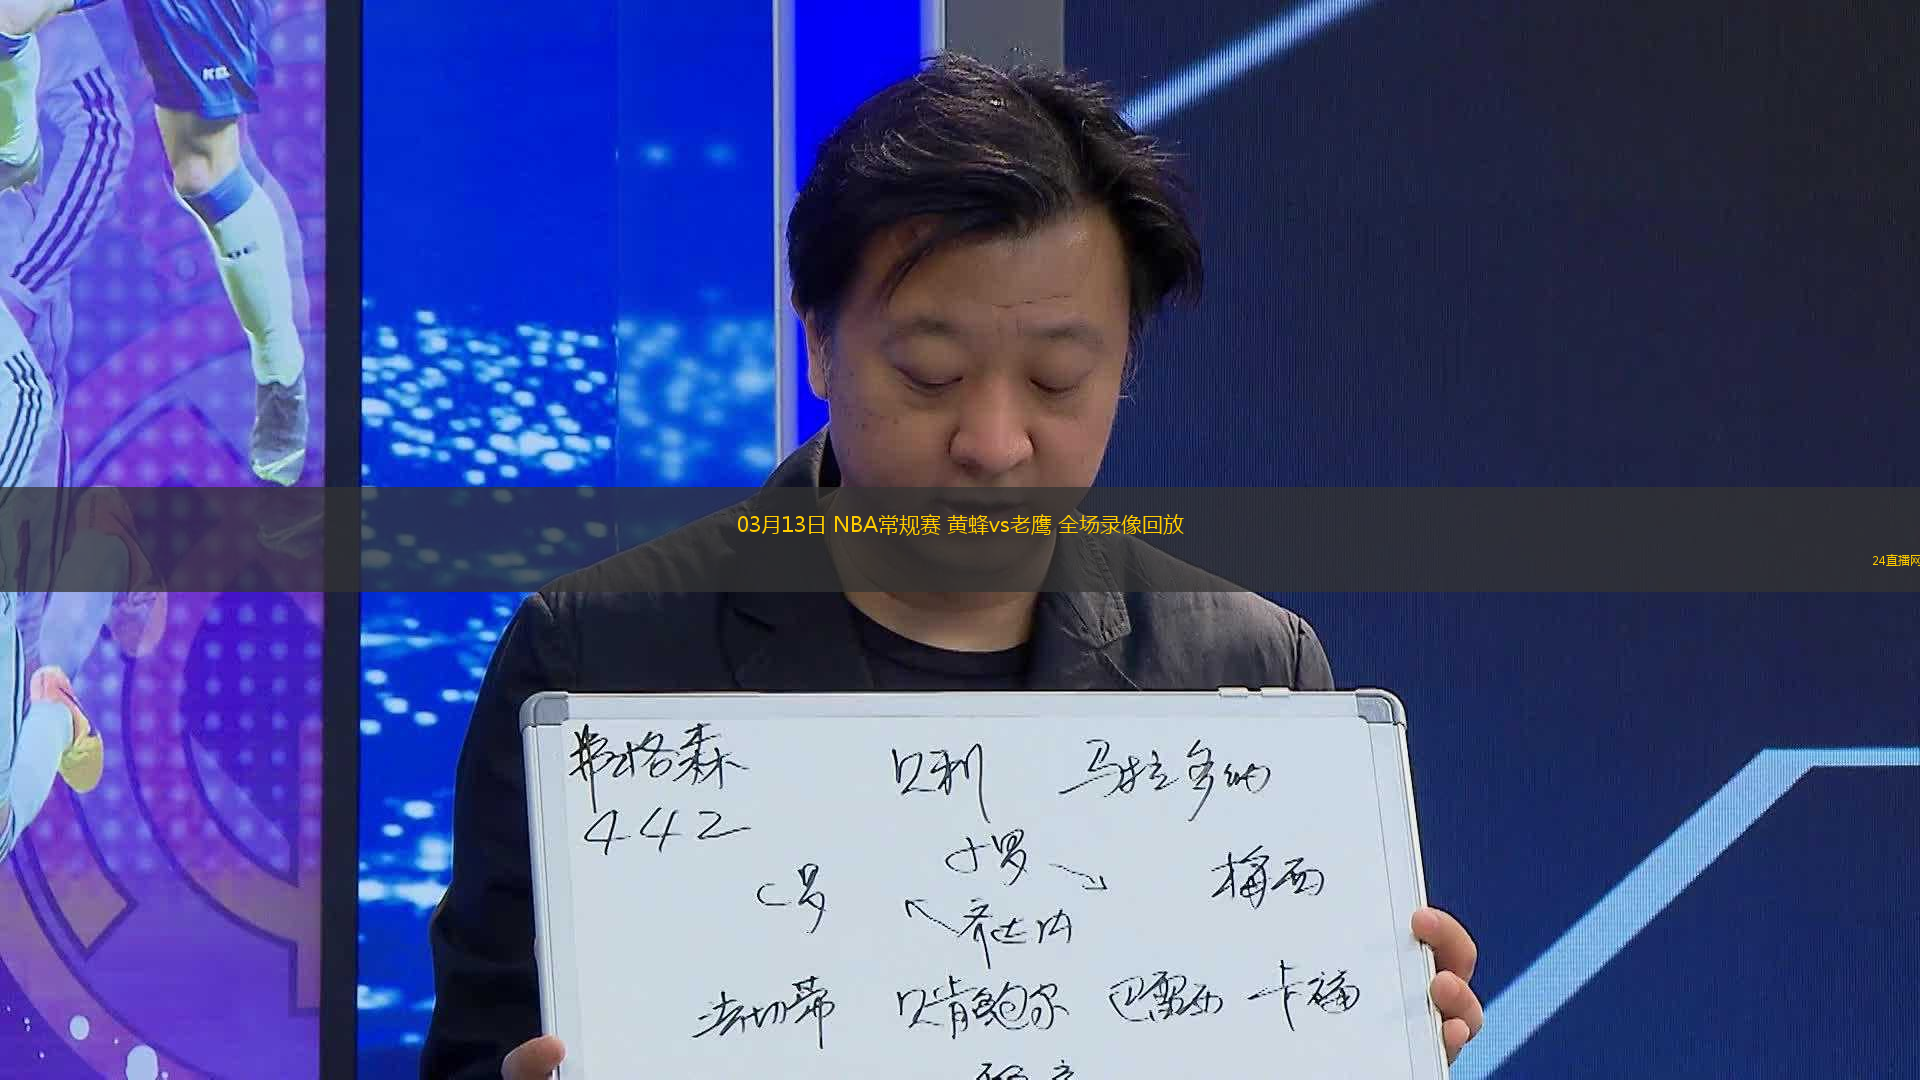 03月13日 NBA常规赛 黄蜂vs老鹰 全场录像回放
24直播网
弗格森 贝利 马拉多纳
442
小罗
C罗 梅西
齐达内
法切蒂 贝肯鲍尔 巴雷西 卡福